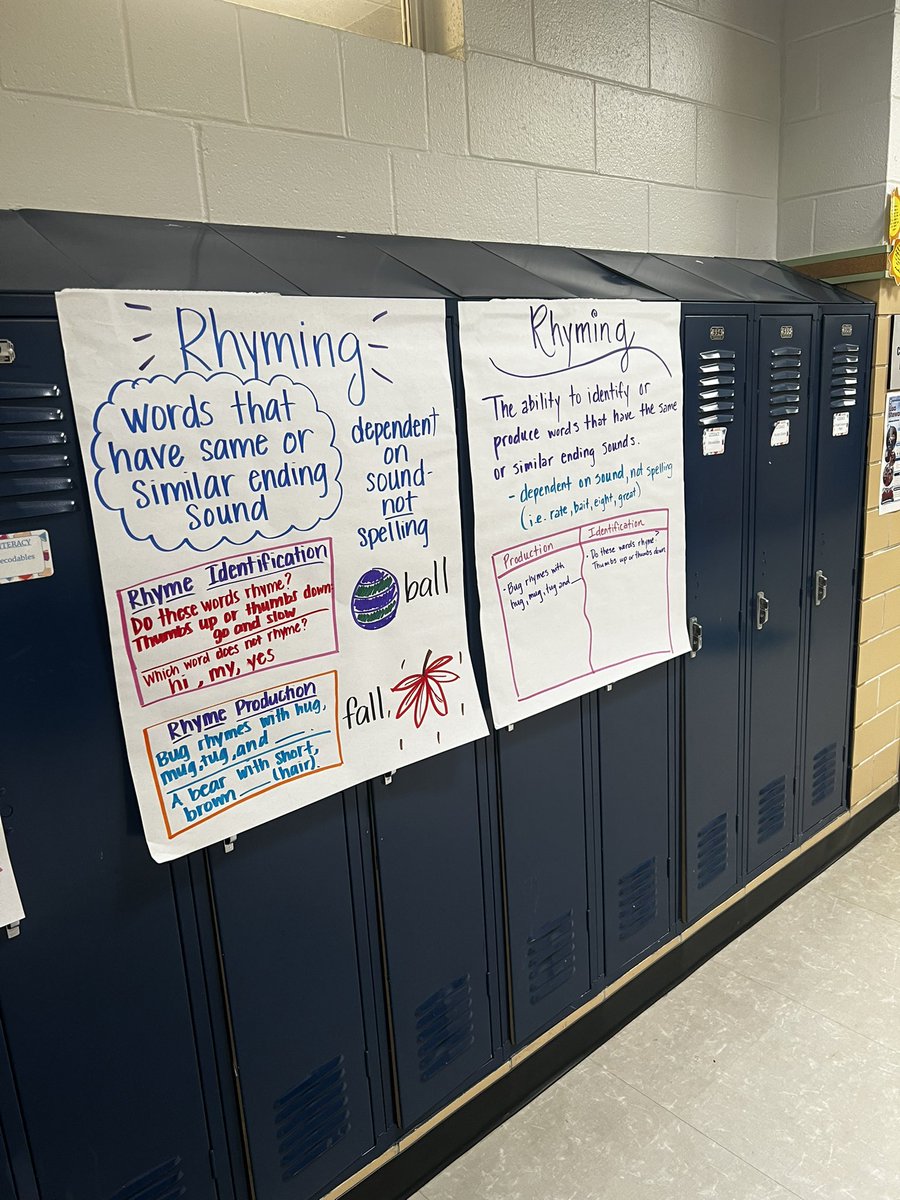 Rhyming
words that
have same or
similar ending
sound
dependent
on
sound-
not
spelling
Rhyme Identification
Do these words rhyme?
Thumbs up or thumbs down:
go and slow
Which word does not rhyme?
hi, my, yes
Rhyme Production
Bug rhymes with hug,
mug, tug, and ___.
A bear with short,
brown ___ (hair).
ball
fall
Rhyming
The ability to identify or
produce words that have the same
or similar ending sounds.
- dependent on sound, not spelling
(i.e. rate, bait, eight, great)
Production
- Bug rhymes with
hug, mug, tug and ___
Identification
- Do these words rhyme?
Thumbs up or thumbs down